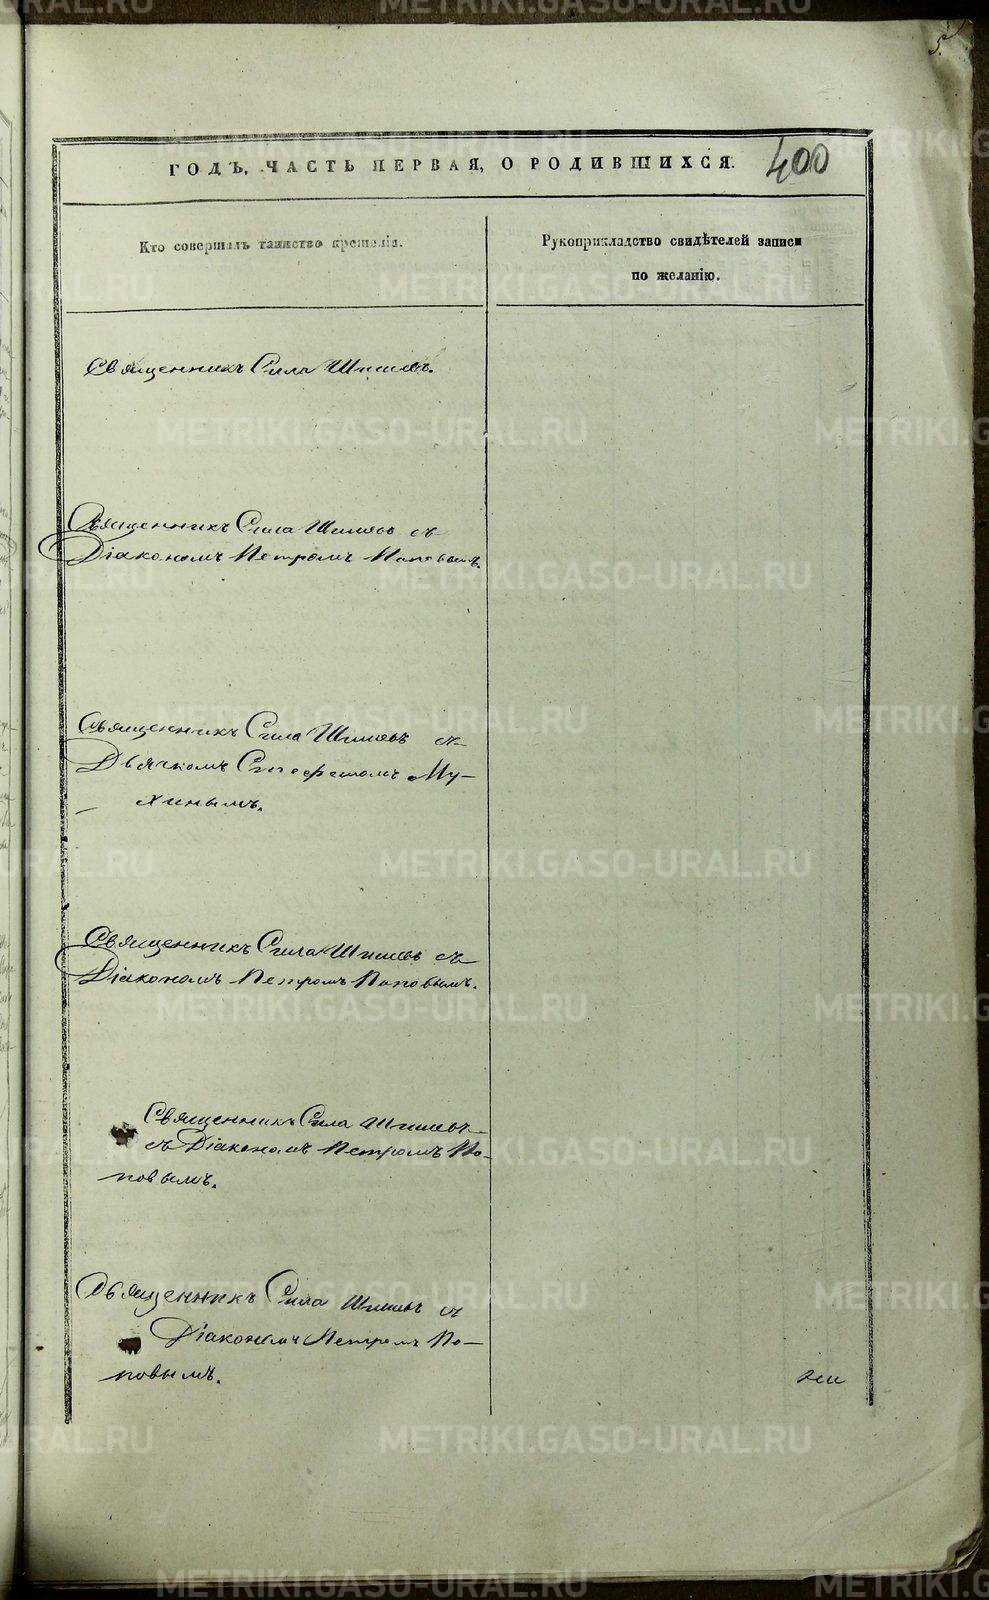 5.
ГОДЪ, ЧАСТЬ ПЕРВАЯ, О РОДИВШИХСЯ.
400
Кто совершалъ таинство крещенія.
Рукоприкладство свидѣтелей записи
по желанію.
Священникъ Сила
Священникъ Сила съ
Діакономъ Петромъ Поповымъ.
Священникъ Сила съ
Дьячкомъ Му-
хинымъ.
Священникъ Сила съ
Діакономъ Петромъ Поповымъ.
Священникъ Сила
съ Діакономъ Петромъ По-
повымъ.
Священникъ Сила съ
Діакономъ Петромъ По-
повымъ.
METRIKI.GASO-URAL.RU